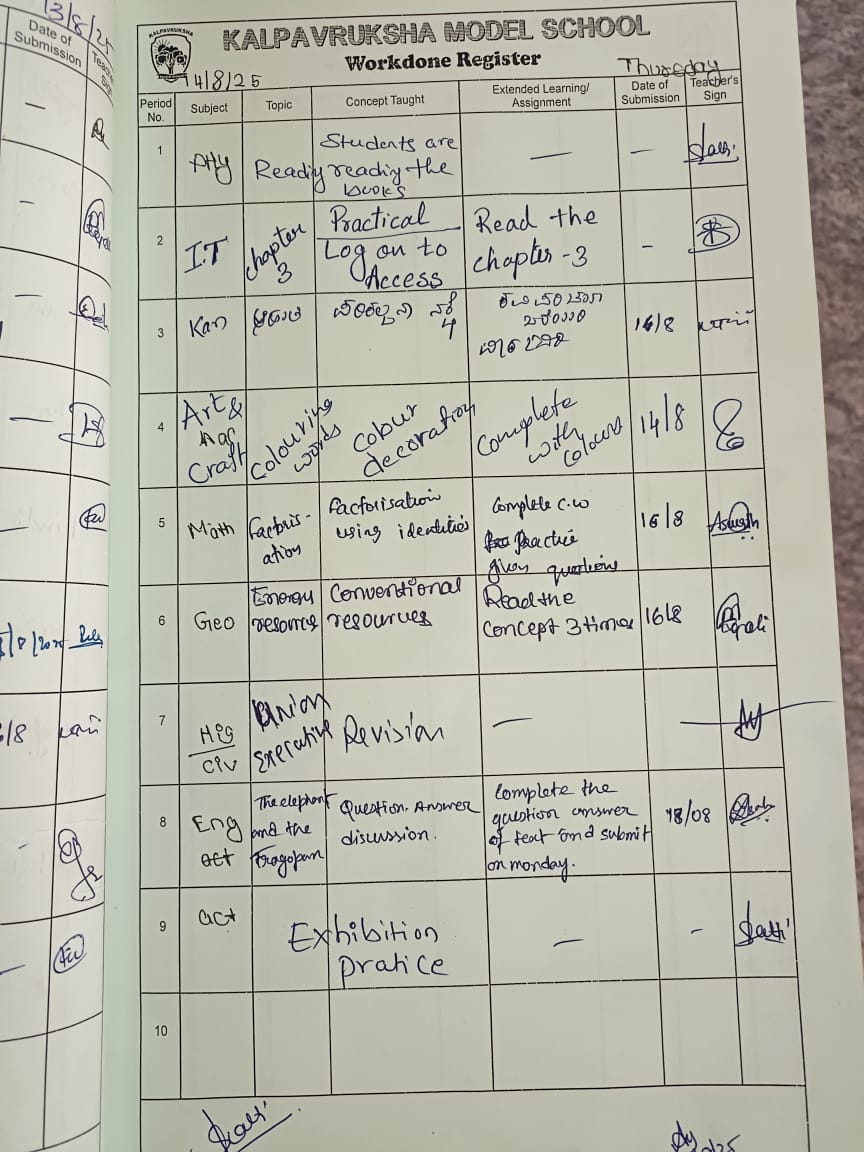 13/8/25
Date of
Submission
KALPAVRUKSHA
KALPAVRUKSHA MODEL SCHOOL
Workdone Register
14/8/25
Thursday
Period No. Subject Topic Concept Taught Extended Learning/ Assignment Date of Submission Teacher's Sign
1 Phy Readiy Students are
readiy the
books — —
2 I.T chapter 3 Practical
Log on to
Access Read the
chapter-3 -
3 Kan 4 16/8
4 Art &
Craft colouring
words colour
decoration complete
with
colours 14/8
5 Math Factoris-
ation Factorisation
using identities Complete C.W
Practice
given questions 16/8
6 Geo Energy
resource Conventional
resources Read the
concept 3 times 16/8
7 His
Civ Union
Executive Revision —
8 Eng
act The elephant
and the
Tragopan Question. Answer
discussion. Complete the
qustion answer
of text and submit
on monday. 18/08
9 act Exhibition
pratice — -
10